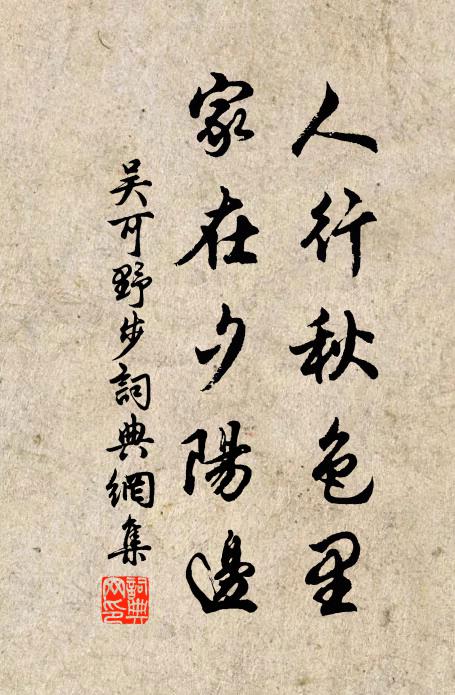 人行秋色里
家在夕陽邊
吳可野步詞典網集
詞典網印